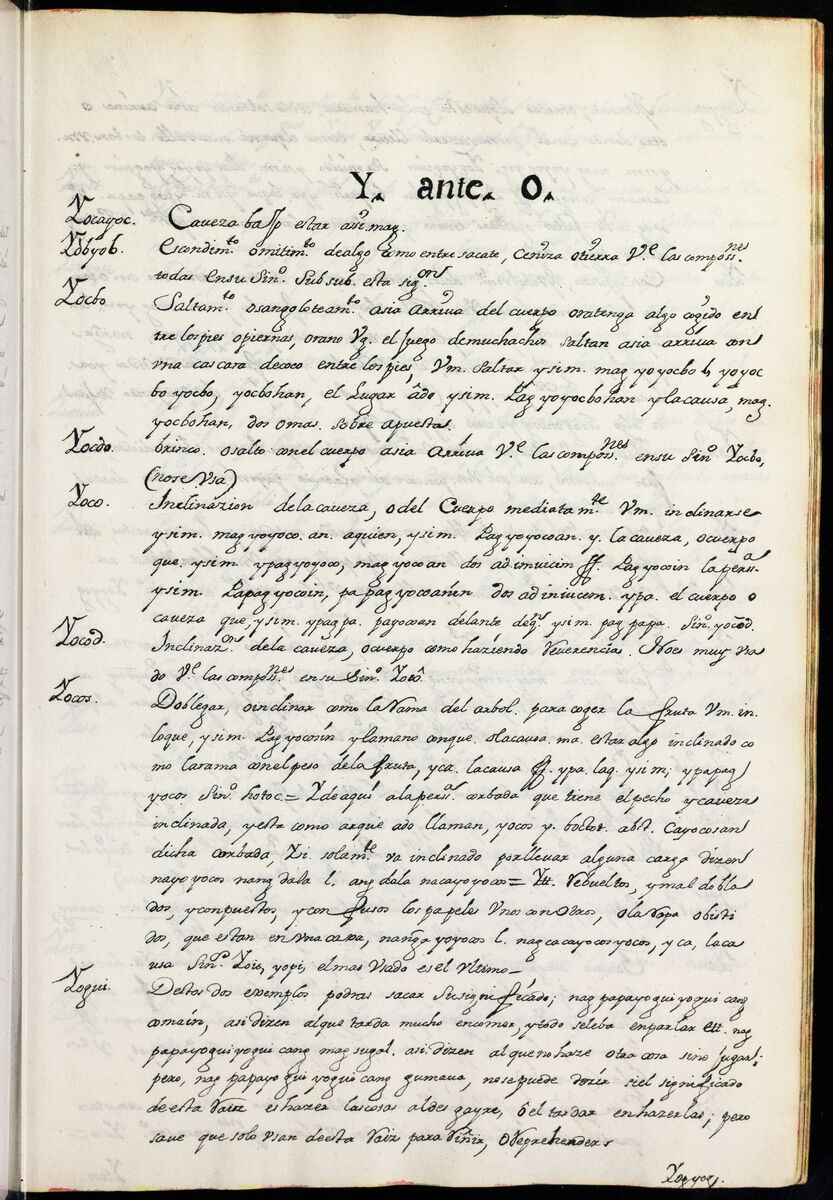 Y. ante. O.
Yocayoc. Caveza baxa estar asi mag.
Yobyob. Escondimto. omitimto. de algo como entre sacate, Ceniza otierra Ve. las composnes.
todas en su Sino. Subsub. esta sigon.
Yocbo Saltamto. osangoloteamto. asia arriva del cuerpo ora tenga algo cogido en
tre los pies opiernas, orano Vg. el Juego de muchachos saltan asia arriva con
vna cascara de coco entre los pies, Vm. saltar y sim. mag yoyocbo l, yoyoc
bo yocbo, yocbohan, el Lugar âdo y sim. Pag yoyocbohan y la causa, mag.
yocbohan, dos o mas. sobre apuestas.
Yocdo. brinco. o salto con el cuerpo asia Arriva Ve. las composnes. en su Sino. Yocbo,
(nose Vsa)
Yoco. Inclinazion de la caveza, o del Cuerpo mediatamte. Vm. inclinarse
y sim. mag yoyoco. an. aquien, y sim. Pag yoyocoan. y. la caveza, o cuerpo
que. y sim ypag yoyoco, mag yocoan dos adinvicim ff. Pag yocoin la persa.
y sim. Papag yocoin, pa pag yocoanin dos ad invicem. ypa. el cuerpo o
caveza que, y sim. ypag pa. payocoan delante deqn. y sim. pag papa. Sino. yocod.
Yocod. Inclinazon. de la caveza, o cuerpo como haziendo Reverencias. Noes muy vsa
do Ve. las composnes en su Sino. Yocô.
Yocos. Doblegar, o inclinar como la Rama del arbol. para coger la fruta Vm. in.
loque, y sim. Pag yocosin y la mano conque. o la causa. ma. estar algo inclinado co
mo la rama con el peso de la fruta, y ca. la causa ff. ypa. laq. y sim; ypapag
yocos Sino. hotoc = Y de aqui a la persa. corbada que tiene el pecho y caveza
inclinada, y esta como arque ado llaman, yocos y. boctot. abt. Cayocosan
dicha corbada, Y si. solamte. va inclinado por llevar alguna carga dizen
nayoyocos nang dala l. ang dala nacayoyocos = Ytt. Rebueltos, y mal dobla
dos, y conpuestos, y con fusos los papeles Vnos con Otros, o la Ropa o bisti
dos, que estan en Vna caxa, nanga yoyocos l. nagcacayocosyocos, y ca, la ca
usa Sino. Yois, yopi, el mas Vsado es el Vltimo -
Yogui. Destos dos exemplos podras sacar Susignificado; nag papayogui yogui cang
comain, asi dizen al que tarda mucho en comer, y todo se le ba en parlar ett. nag
papayogui yogui cang mag sugal. asi dizen al que no haze otra cosa sino jugar;
pero, nag papayogui yogui cang gumava, no se puede dezir si el significado
de esta Raiz es hazer las cosas aldesgayre, ô el tardar en hazerlas; pero
save que solo vsan de esta Raiz para Riñir, o Reprehender
Yogyog.